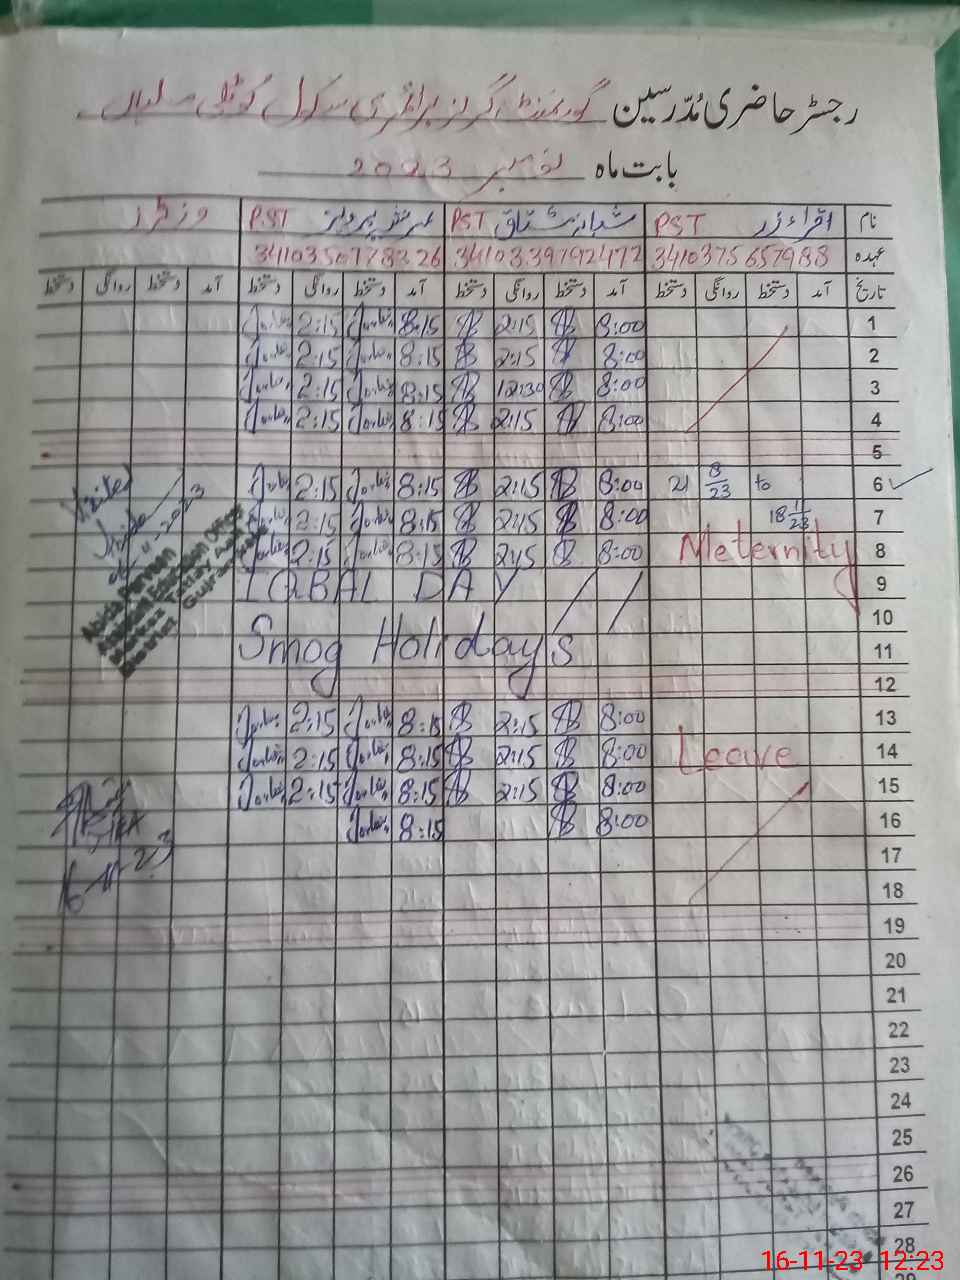 رجسٹر حاضری مُدّرسین گورنمنٹ گرلز پرائمری سکول کوٹلی
بابت ماہ نومبر 2023
نام اقراء PST شبانہ مشتاق PST پرویز P.ST وزٹرز
عہدہ 3410375657988 3410339792472 3410350778326
تاریخ آمد دستخط روانگی دستخط آمد دستخط روانگی دستخط آمد دستخط روانگی دستخط آمد دستخط روانگی دستخط
1 8:00 2:15 8:15 2:15
2 8:00 2:15 8:15 2:15
3 8:00 12:30 8:15 2:15
4 8:00 2:15 8:15 2:15
5
6 21 8/23 to 8:00 2:15 8:15 2:15 Visited
7 18 1/23 8:00 2:15 8:15 2:15
8 Meternity 8:00 2:15 8:15 2:15
9 IQBAL DAY
10
11 Smog Holidays
12
13 8:00 2:15 8:15 2:15
14 Leave 8:00 2:15 8:15 2:15
15 8:00 2:15 8:15 2:15
16 8:00 8:15
17
18
19
20
21
22
23
24
25
26
27
28
Abida Parveen
Assistant Education Officer
16-11-23
16-11-23 12:23